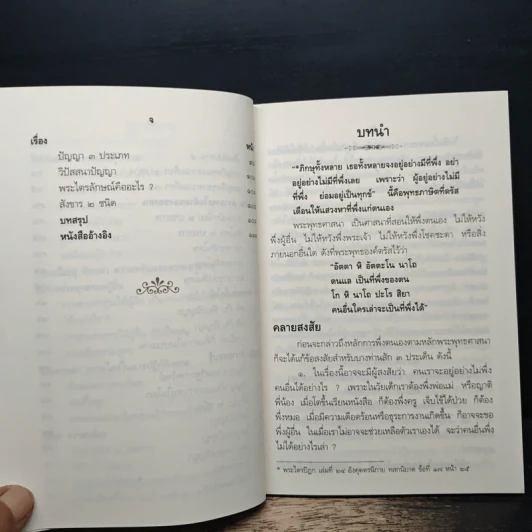 จ
เรื่อง
ปัญญา ๓ ประเภท
วิปัสสนาปัญญา
พระไตรลักษณ์คืออะไร ?
สังขาร ๒ ชนิด
บทสรุป
หนังสืออ้างอิง
บทนำ
"*ภิกษุทั้งหลาย เธอทั้งหลายจงอยู่อย่างมีที่พึ่ง อย่า
อยู่อย่างไม่มีที่พึ่งเลย เพราะว่า ผู้อยู่อย่างไม่มี
ที่พึ่ง ย่อมอยู่เป็นทุกข์" นี้คือพุทธภาษิตที่ตรัส
เตือนให้แสวงหาที่พึ่งแก่ตนเอง
พระพุทธศาสนา เป็นศาสนาที่สอนให้พึ่งตนเอง ไม่ให้หวัง
พึ่งผู้อื่น ไม่ให้หวังพึ่งพระเจ้า ไม่ให้หวังพึ่งโชคชะตา หรือสิ่ง
ภายนอกอื่นใด ดังที่พระพุทธองค์ตรัสไว้ว่า
"อัตตา หิ อัตตะโน นาโถ
ตนแล เป็นที่พึ่งของตน
โก หิ นาโถ ปะโร สิยา
คนอื่นใครเล่าจะเป็นที่พึ่งได้"
คลายสงสัย
ก่อนจะกล่าวถึงหลักการพึ่งตนเองตามหลักพระพุทธศาสนา
ก็จะได้แก้ข้อสงสัยสำหรับบางท่านสัก ๓ ประเด็น ดังนี้
๑. ในเรื่องนี้อาจจะมีผู้สงสัยว่า คนเราจะอยู่อย่างไม่พึ่ง
คนอื่นได้อย่างไร ? เพราะในวัยเด็กเราต้องพึ่งพ่อแม่ หรือญาติ
พี่น้อง เมื่อโตขึ้นเรียนหนังสือ ก็ต้องพึ่งครู เจ็บไข้ได้ป่วย ก็ต้อง
พึ่งหมอ เมื่อมีความเดือดร้อนหรือธุระการงานเกิดขึ้น ก็อาจจะขอ
พึ่งผู้อื่น ในเมื่อเราไม่อาจจะช่วยเหลือตัวเราเองได้ จะว่าคนอื่นพึ่ง
ไม่ได้อย่างไรเล่า ?
* พระไตรปิฎก เล่มที่ ๒๔ อังคุตตรนิกาย ทสกนิบาต ข้อที่ ๑๗ หน้า ๒๕